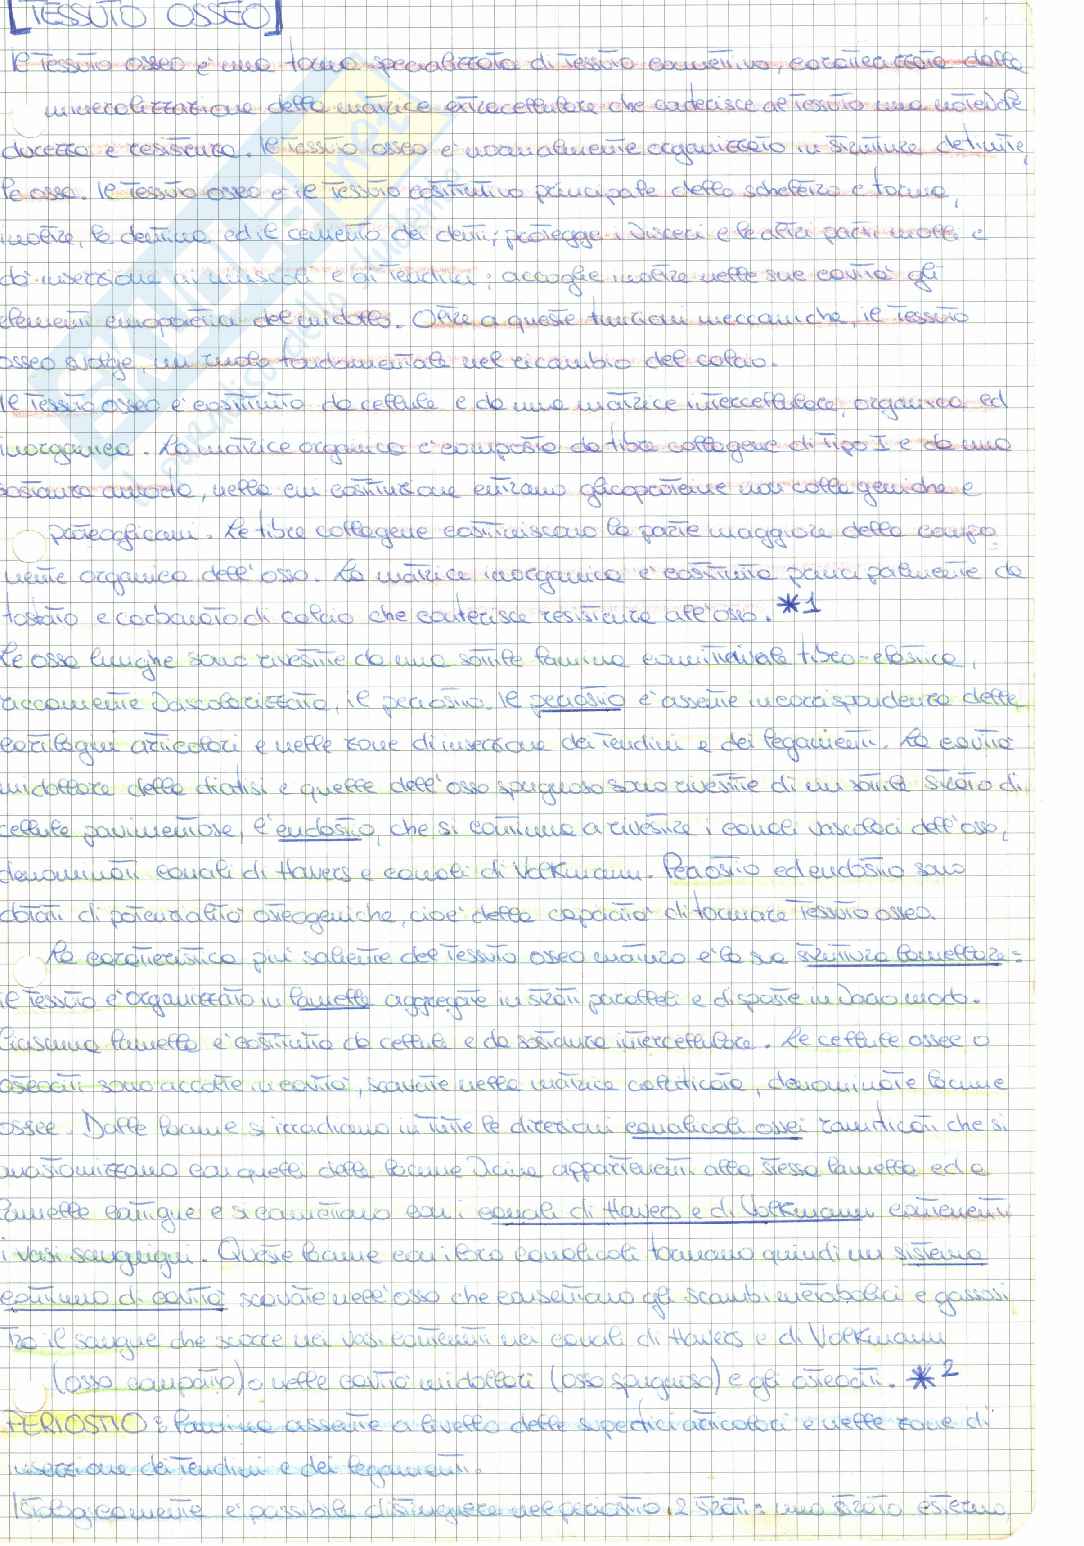 [TESSUTO OSSEO]
Il tessuto osseo è una forma specializzata di tessuto connettivo, caratterizzato dalla
mineralizzazione della matrice extracellulare che conferisce al tessuto una notevole
durezza e resistenza. Il tessuto osseo è normalmente organizzato in strutture definite,
le ossa. Il tessuto osseo è il tessuto costitutivo principale dello scheletro e forma,
inoltre, la dentina ed il cemento dei denti; protegge i visceri e le altri parti molli e
dà inserzione ai muscoli e ai tendini; accoglie inoltre nelle sue cavità gli
elementi emopoietici del midollo. Oltre a queste funzioni meccaniche, il tessuto
osseo svolge un ruolo fondamentale nel ricambio del calcio.
Il tessuto osseo è costituito da cellule e da una matrice intercellulare, organica ed
inorganica. La matrice organica è composta da fibre collagene di tipo I e da una
sostanza amorfa, nella cui costituzione entrano glicoproteine non collageniche e
proteoglicani. Le fibre collagene costituiscono la parte maggiore della compo
nente organica dell'osso. La matrice inorganica è costituita principalmente da
fosfato e carbonato di calcio che conferisce resistenza all'osso. *1
Le ossa lunghe sono rivestite da una sottile lamina connettivale fibro-elastica,
riccamente vascolarizzata, il periostio. Il periostio è assente in corrispondenza delle
cartilagini articolari e nelle zone di inserzione dei tendini e dei legamenti. La cavità
midollare della diafisi e quelle dell'osso spugnoso sono rivestite di un sottile strato di
cellule pavimentose, l'endostio, che si continua a rivestire i canali vascolari dell'osso,
denominati canali di Havers e canali di Volkmann. Periostio ed endostio sono
dotati di potenzialità osteogeniche, cioè della capacità di formare tessuto osseo.
La caratteristica più saliente del tessuto osseo maturo è la sua struttura lamellare:
il tessuto è organizzato in lamelle aggregate in strati paralleli e disposte in vario modo.
Ciascuna lamella è costituita da cellule e da sostanza intercellulare. Le cellule ossee o
osteociti sono accolte in cavità, scavate nella matrice calcificata, denominate lacune
ossee. Dalle lacune si irradiano in tutte le direzioni canalicoli ossei ramificati che si
anastomizzano con quelli delle lacune vicine appartenenti alla stessa lamella ed a
lamelle contigue e si connettono con i canali di Havers e di Volkmann contenenti
i vasi sanguigni. Queste lacune con i loro canalicoli formano quindi un sistema
continuo di cavità scavate nell'osso che consentono gli scambi metabolici e gassosi
tra il sangue che scorre nei vasi contenuti nei canali di Havers e di Volkmann
(osso compatto) o nelle cavità midollari (osso spugnoso) e gli osteociti. *2
PERIOSTIO: lamina assente a livello delle superfici articolari e nelle zone di
inserzione dei tendini e dei legamenti.
Istologicamente è possibile distinguere nel periostio 2 strati: uno strato esterno,